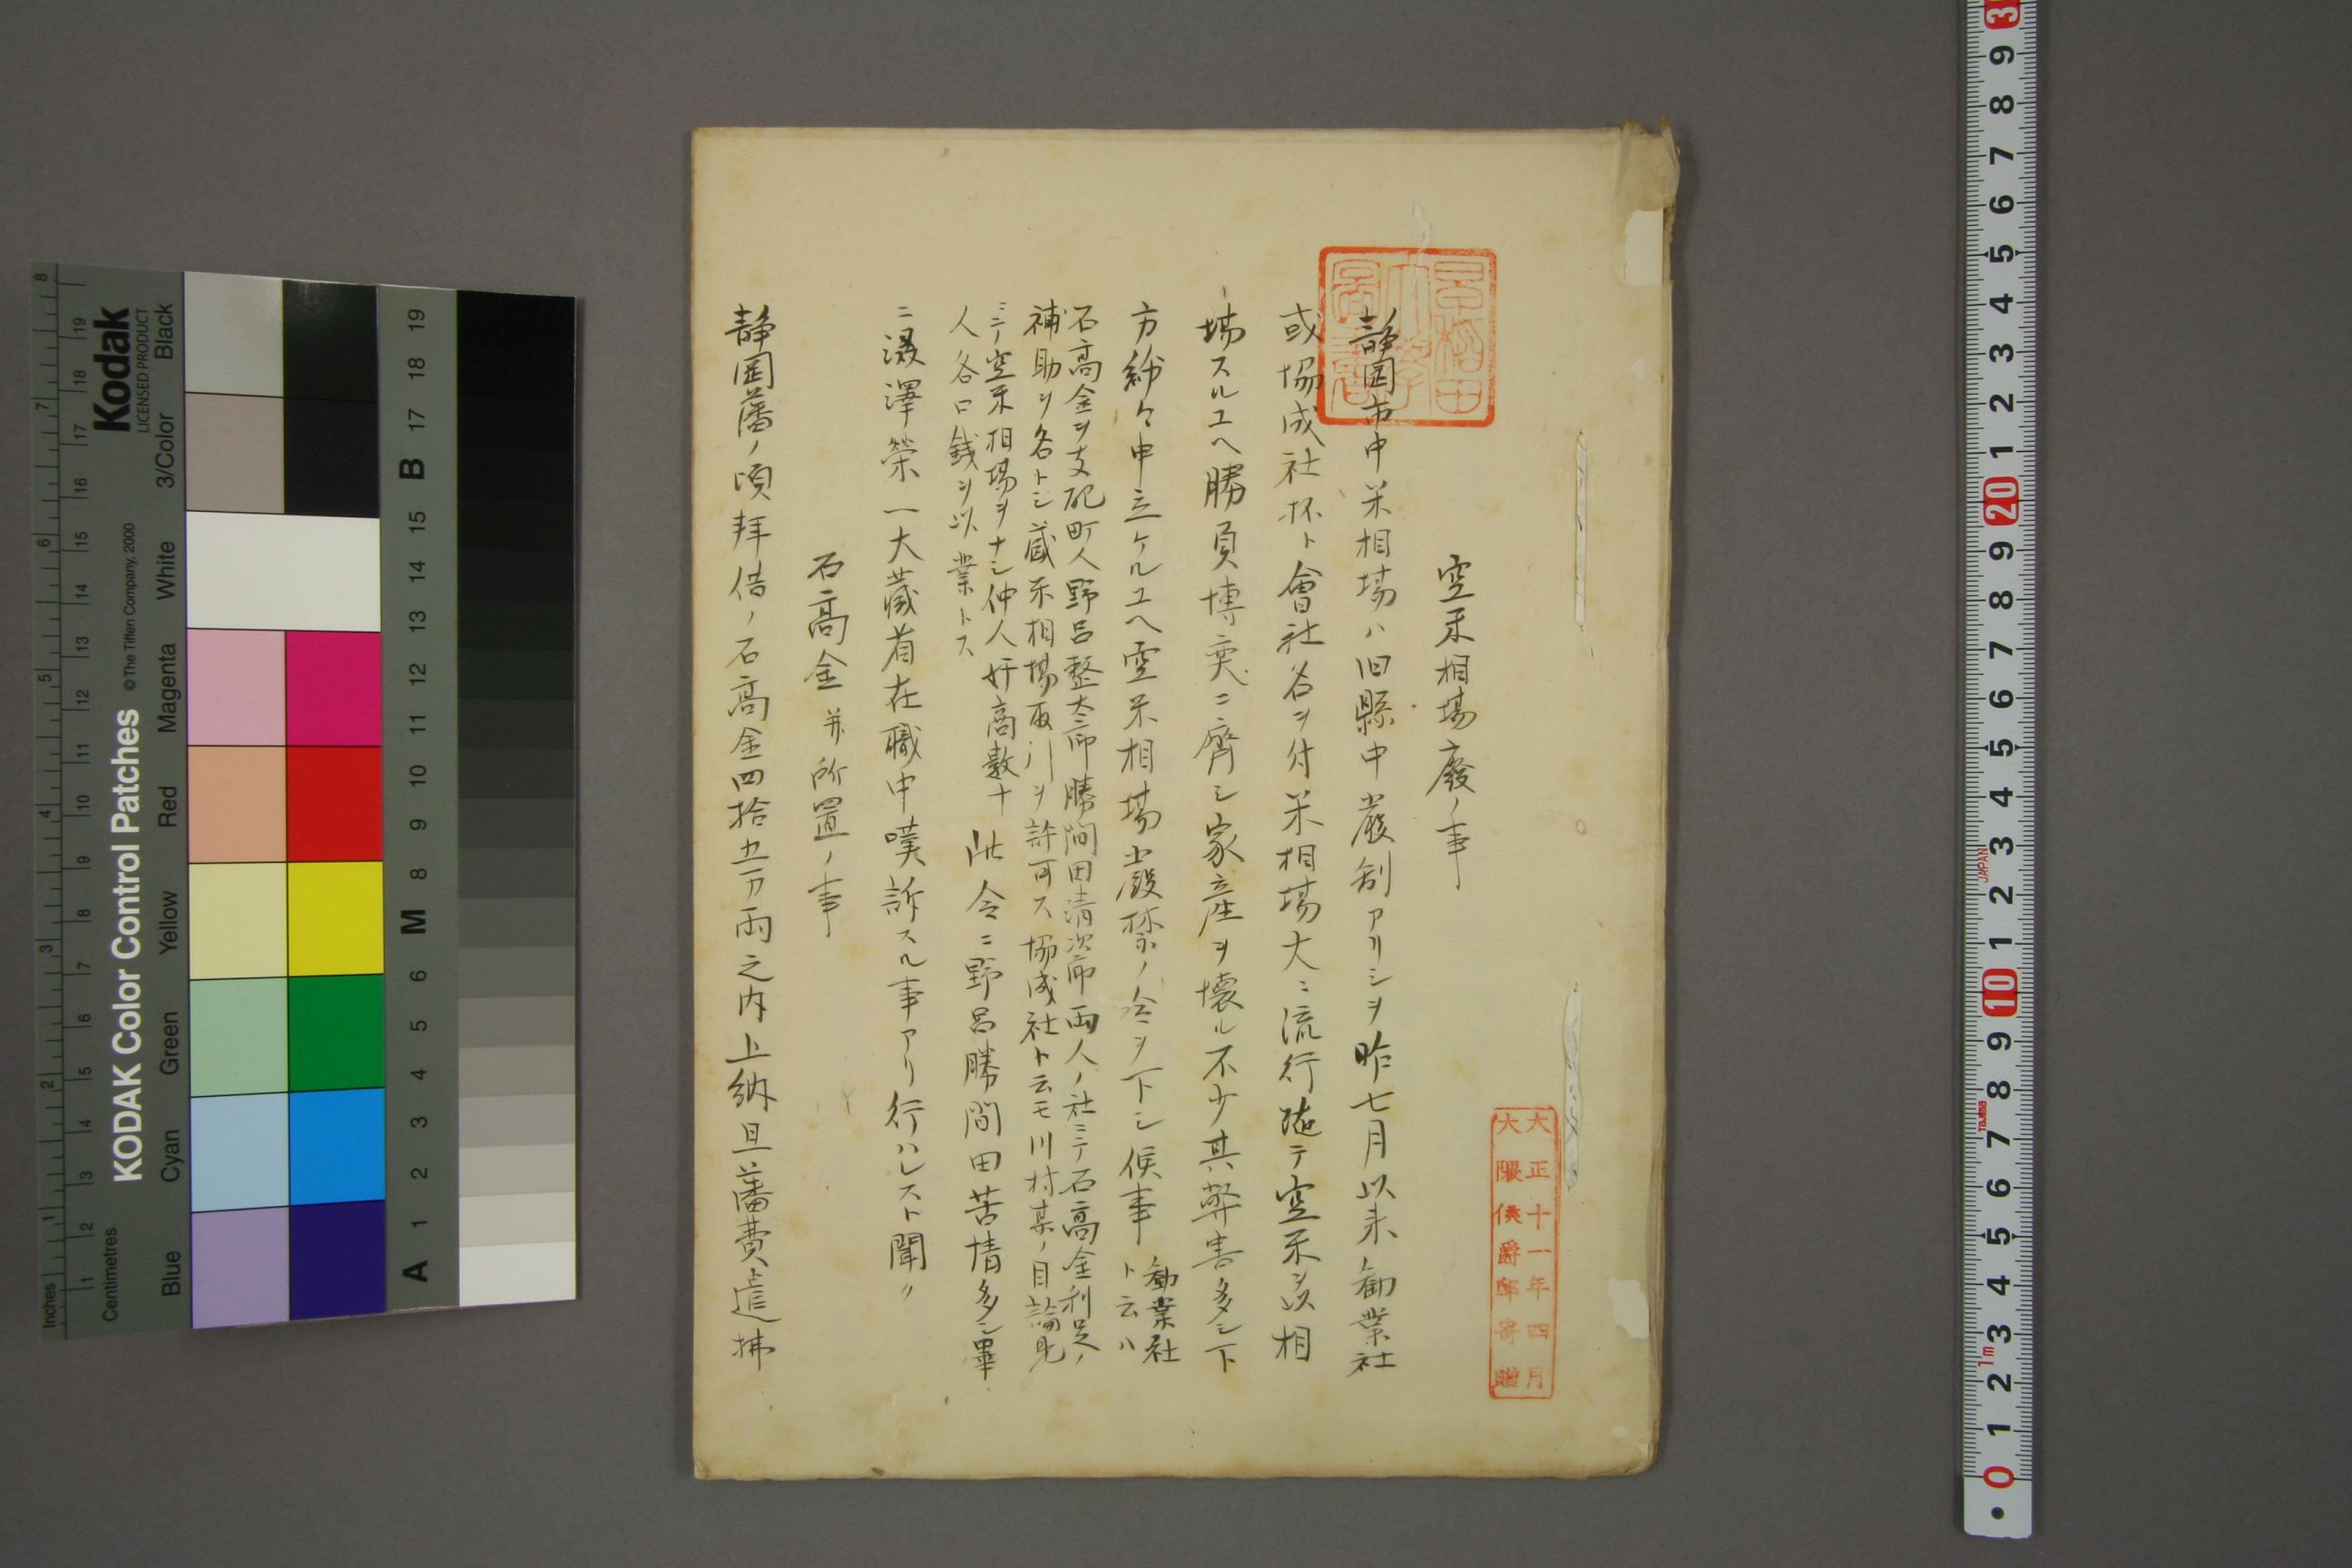 空米相場廢ノ事
静岡市中米相場ハ旧縣中嚴制アリシヲ昨七月以来勧業社
或協成社抔ト會社名ヲ付米相場大ニ流行随テ空米ヲ以相
場スルユヘ勝負博奕ニ齊シ家産ヲ壊ル不少其弊害多シ下
方紛々申立ケルユヘ空米相場嚴禁ノ令ヲ下シ候事
勧業社
ト云ハ
石高金ヲ支配町人野呂整太郎勝間田清次郎両人ノ社ニテ石高金利足ノ
補助ヲ名トシ蔵米相場取引ヲ許可ス協成社ト云モ川村某ノ目論見
ニテ空米相場ヲナシ仲人奸商数十
人各口銭ヲ以業トス
此令ニ野呂勝間田苦情多シ畢
ニ澁澤榮一大蔵省在職中嘆訴スル事アリ行ハレスト聞ク
石高金并所置ノ事
静岡藩ノ頃拝借ノ石高金四拾五万両之内上納且藩費遣拂
早稲田大學圖書
大正十一年四月
大隈侯爵邸寄贈
KODAK Color Control Patches
Kodak
LICENSED PRODUCT
© The Tiffen Company, 2000
Inches
Centimetres
Blue Cyan Green Yellow Red Magenta White 3/Color Black
A 1 2 3 4 5 6 M 8 9 10 11 12 13 14 15 B 17 18 19
JAPAN
TAJIMA
1m